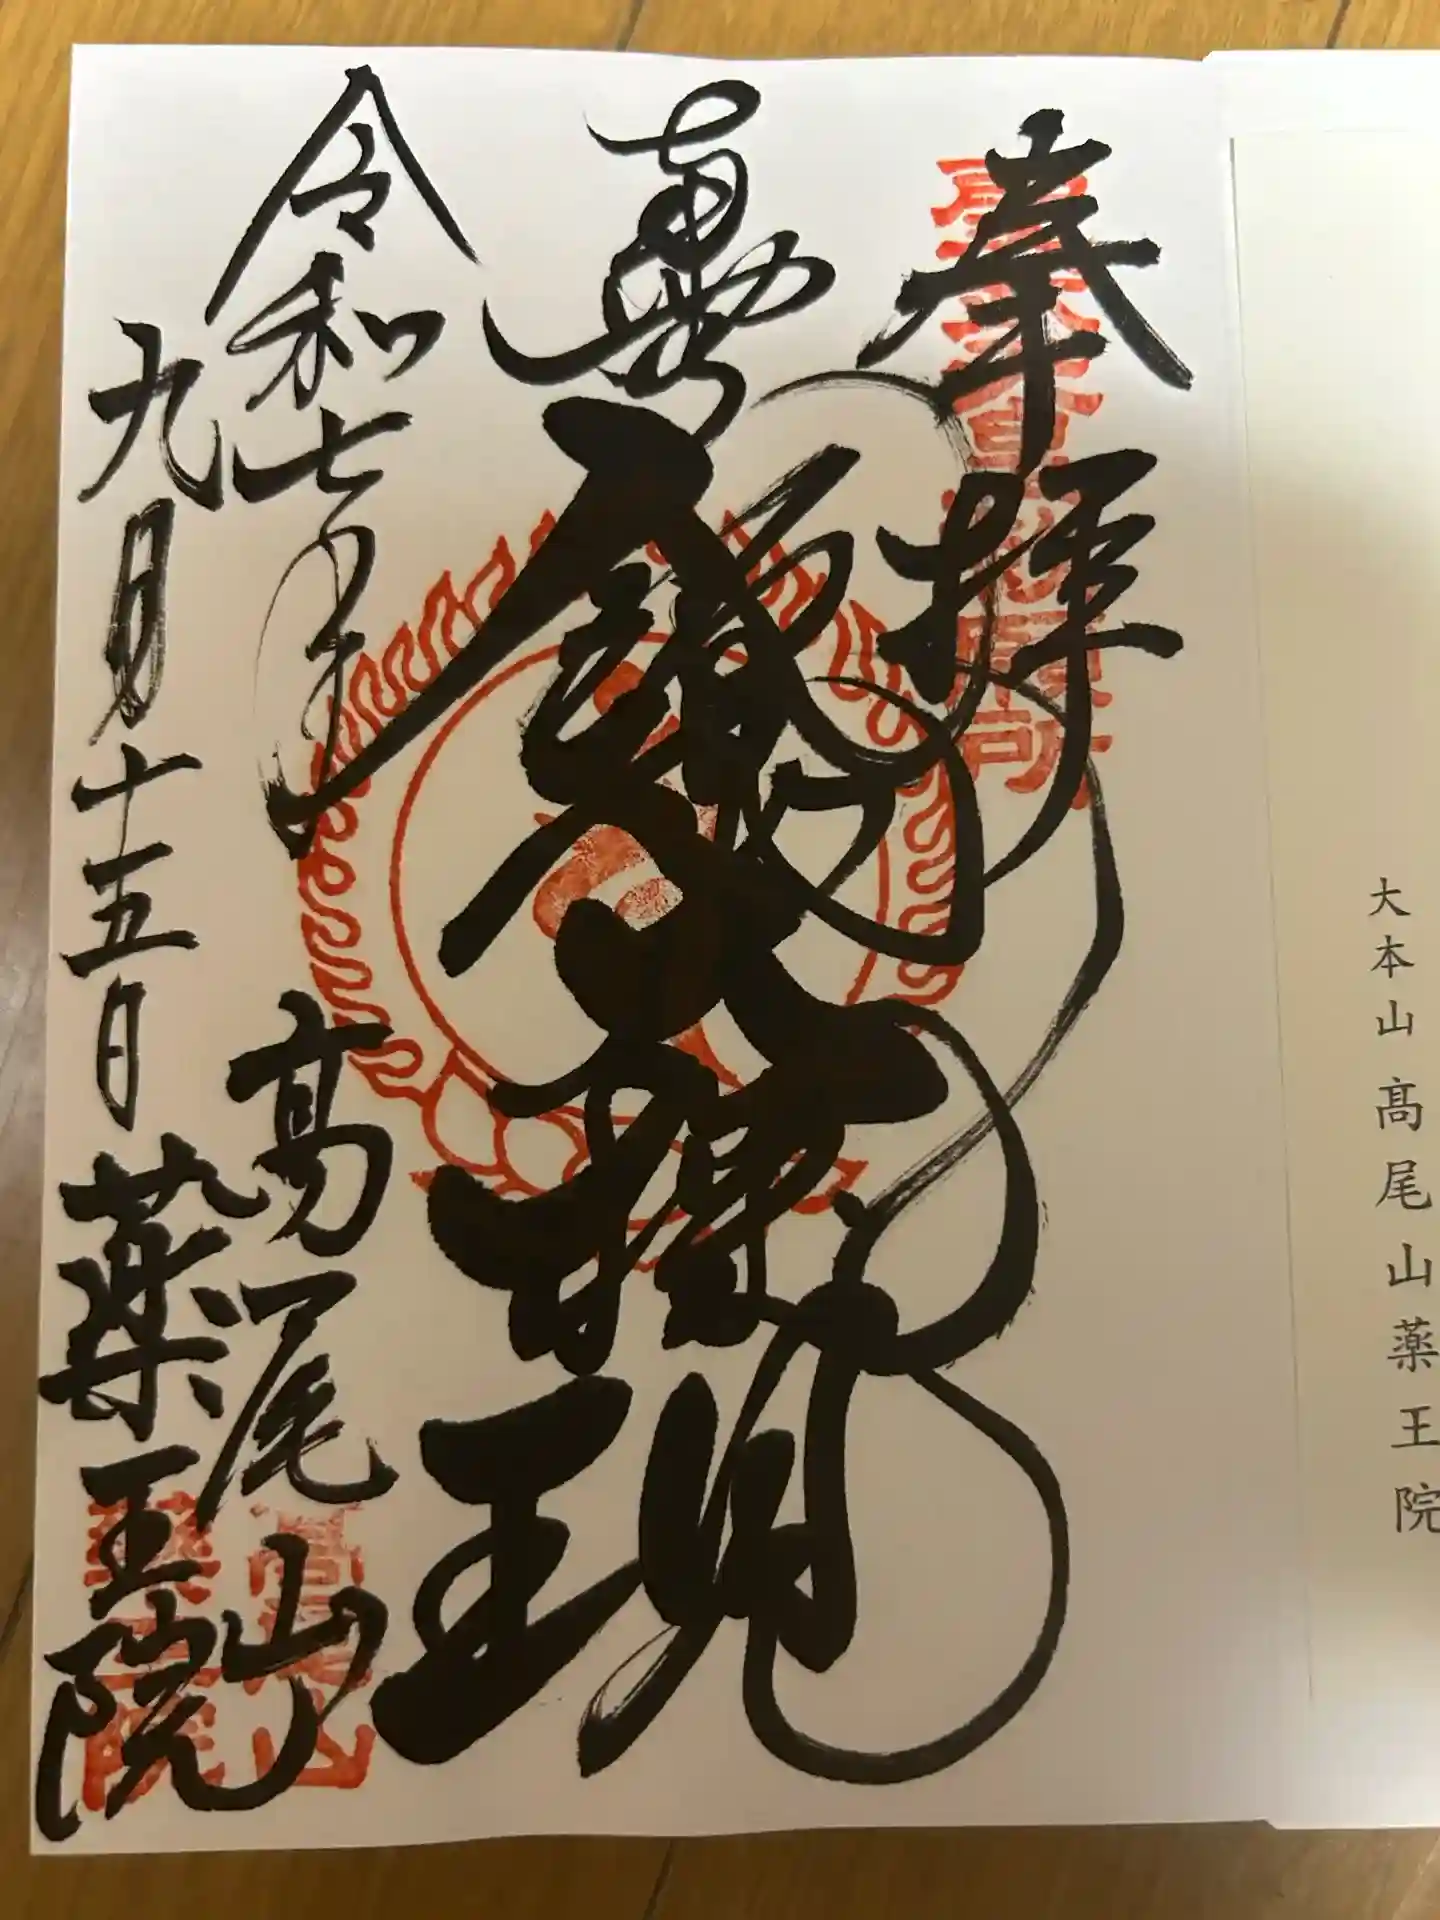 大本山 髙尾山薬王院
奉拝
飯縄大権現
令和七年
九月十五日
髙尾山
薬王院